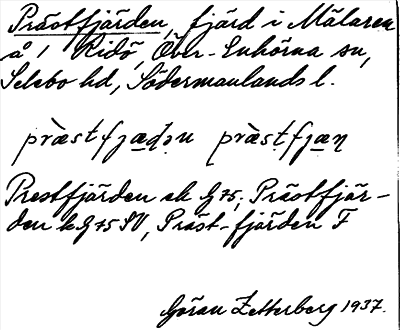 Prästfjärden, fjärd i Mälaren
å 1 Ridö, Över-Enhörna sn,
Selebo hd, Södermanlands l.
præ̀stfjæḍən præ̀sṭfjæṇ
Prestfjärden ek G75; Prästfjär-
den k G75 SV, Präst-fjärden F
Göran Zetterberg 1937.